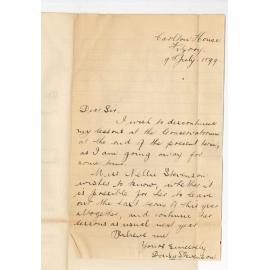 Carlton House
Fitzroy
9th July. 1899
Dear Sir,
I wish to discontinue
my lessons at the Conservatorium
at the end of the present term,
as I am going away for
some time.
Miss Nellie Stevenson
wishes to know, whether it
is possible for her to leave
out the last term of this year
altogether, and continue her
lessons as usual next year.
Believe me
Yours sincerely
Stevenson